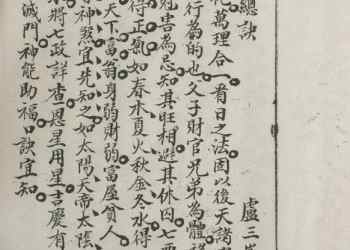 總訣
盧三
萬理合一看日之法固以後天諸
行為的也父子財官兄弟為體
害為忌知其旺相避其休囚七
得正氣如春木夏火秋金冬水得
天下富翁身弱財弱富屋貧人
神煞宜先知之如太陽天帝太陰
將七政詳查恩星用星吉慶有
滅門神能助福口訣宜知